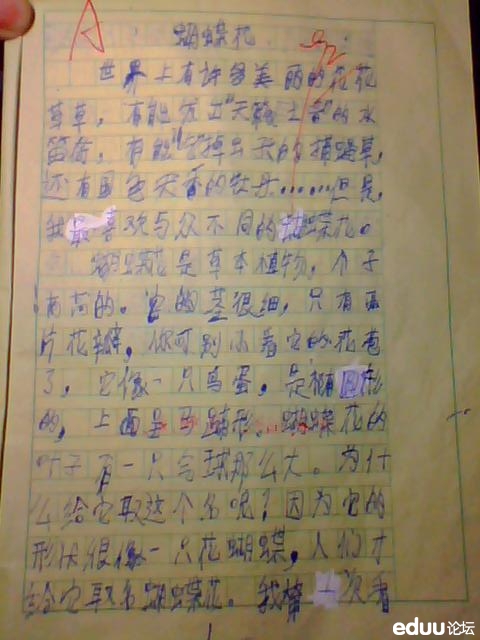 A
蝴蝶花
世界上有许多美丽的花花
草草，有能发出"天籁之音"的水
笛荷，有能"吃"掉虫子的捕蝇草，
还有国色天香的牡丹……但是，
我最喜欢与众不同的蝴蝶花。
蝴蝶花是草本植物，个子
高高的。它的茎很细，只有五
片花瓣，你可别小看它的花苞
了，它像一只鸟蛋，是椭圆形
的，上面呈马蹄形。蝴蝶花的
叶子有一只乓球那么大。为什
么给它取这个名呢？因为它的
形状很像一只花蝴蝶，人们才
给它取名蝴蝶花。我第一次看
1
eduu论坛